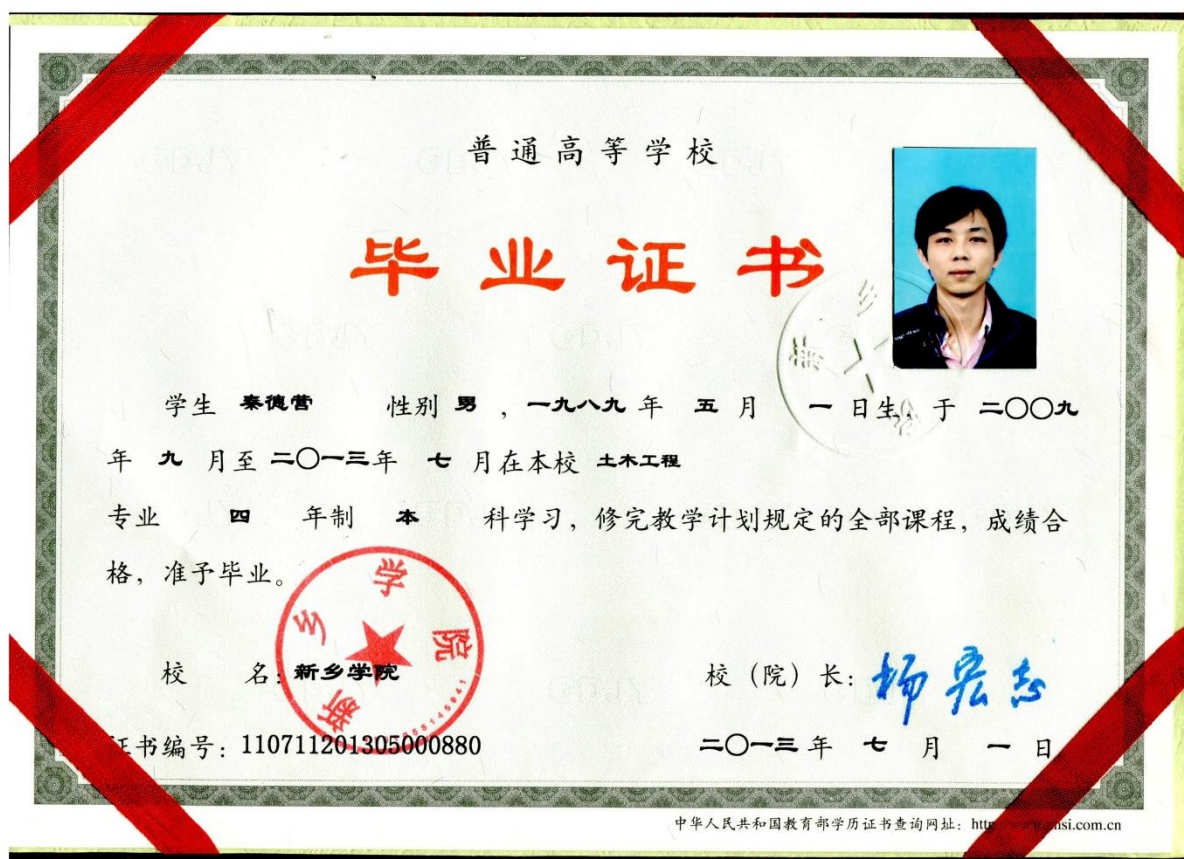 普通高等学校
毕业证书
学生 秦德营 性别 男 ，一九八九 年 五 月 一 日生，于 二〇〇九
年 九 月至 二〇一三年 七 月在本校 土木工程
专业 四 年制 本 科学习，修完教学计划规定的全部课程，成绩合
格，准予毕业。
新乡学院
校 名：新乡学院
校（院）长：杨宏志
证书编号：110711201305000880
二〇一三年 七 月 一 日
中华人民共和国教育部学历证书查询网址：http
si.com.cn